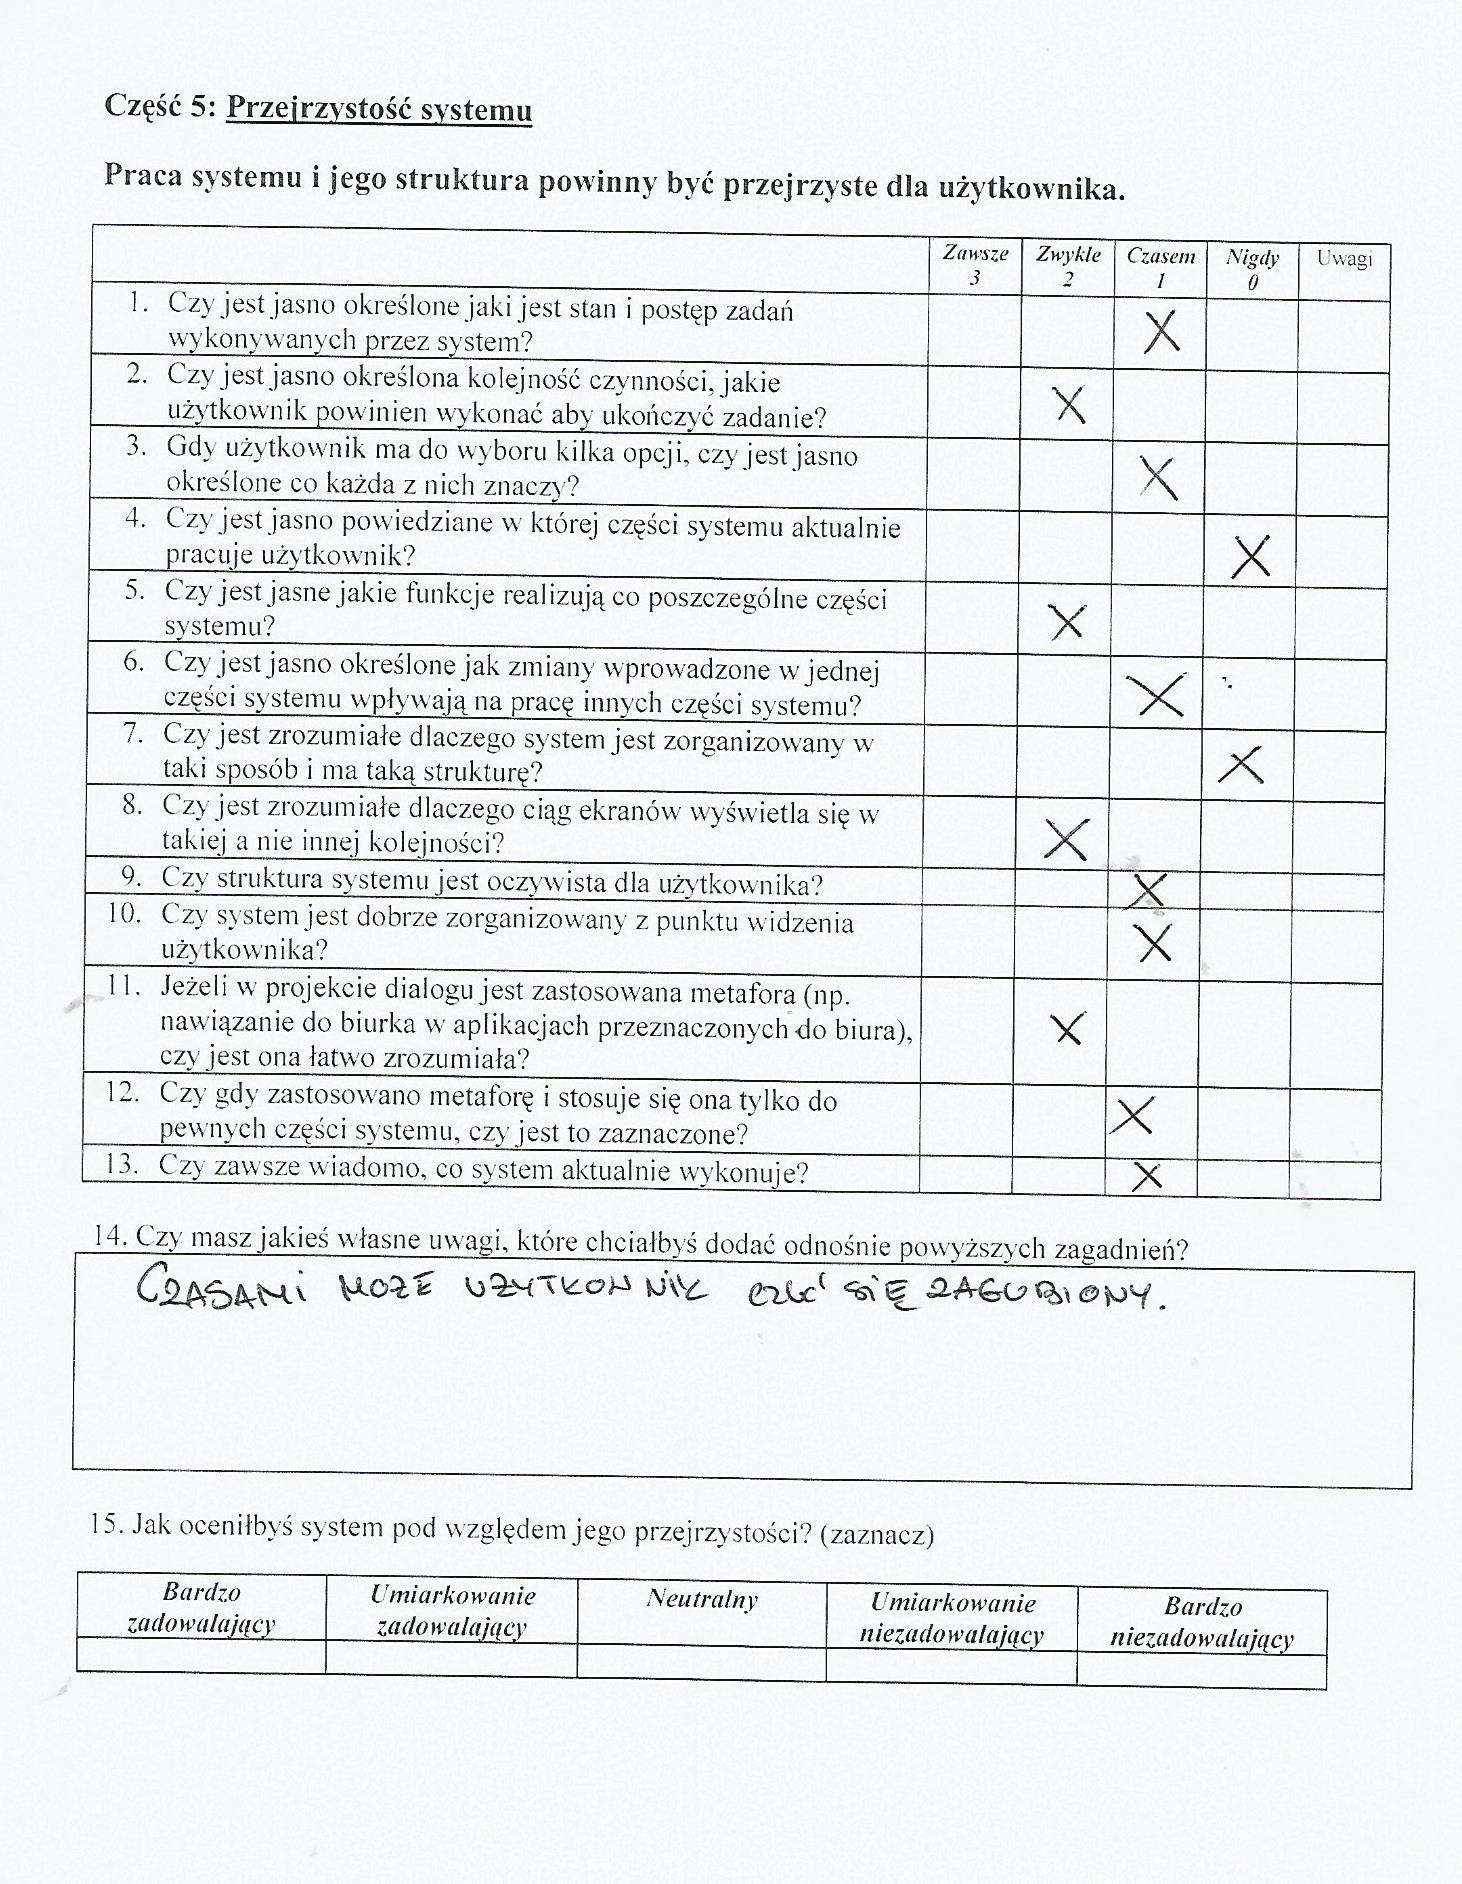 Część 5: Przejrzystość systemu
Praca systemu i jego struktura powinny być przejrzyste dla użytkownika.
Zawsze Zwykle Czasem Nigdy Uwagi
3 2 1 0
1. Czy jest jasno określone jaki jest stan i postęp zadań X
wykonywanych przez system?
2. Czy jest jasno określona kolejność czynności, jakie X
użytkownik powinien wykonać aby ukończyć zadanie?
3. Gdy użytkownik ma do wyboru kilka opcji, czy jest jasno X
określone co każda z nich znaczy?
4. Czy jest jasno powiedziane w której części systemu aktualnie X
pracuje użytkownik?
5. Czy jest jasne jakie funkcje realizują co poszczególne części X
systemu?
6. Czy jest jasno określone jak zmiany wprowadzone w jednej X
części systemu wpływają na pracę innych części systemu?
7. Czy jest zrozumiałe dlaczego system jest zorganizowany w X
taki sposób i ma taką strukturę?
8. Czy jest zrozumiałe dlaczego ciąg ekranów wyświetla się w X
takiej a nie innej kolejności?
9. Czy struktura systemu jest oczywista dla użytkownika? X
10. Czy system jest dobrze zorganizowany z punktu widzenia X
użytkownika?
11. Jeżeli w projekcie dialogu jest zastosowana metafora (np.
nawiązanie do biurka w aplikacjach przeznaczonych do biura), X
czy jest ona łatwo zrozumiała?
12. Czy gdy zastosowano metaforę i stosuje się ona tylko do X
pewnych części systemu, czy jest to zaznaczone?
13. Czy zawsze wiadomo, co system aktualnie wykonuje? X
14. Czy masz jakieś własne uwagi, które chciałbyś dodać odnośnie powyższych zagadnień?
CZASAMI MOŻE UŻYTKOWNIK CZUĆ SIĘ ZAGUBIONY.
15. Jak oceniłbyś system pod względem jego przejrzystości? (zaznacz)
Bardzo Umiarkowanie Neutralny Umiarkowanie Bardzo
zadowalający zadowalający niezadowalający niezadowalający